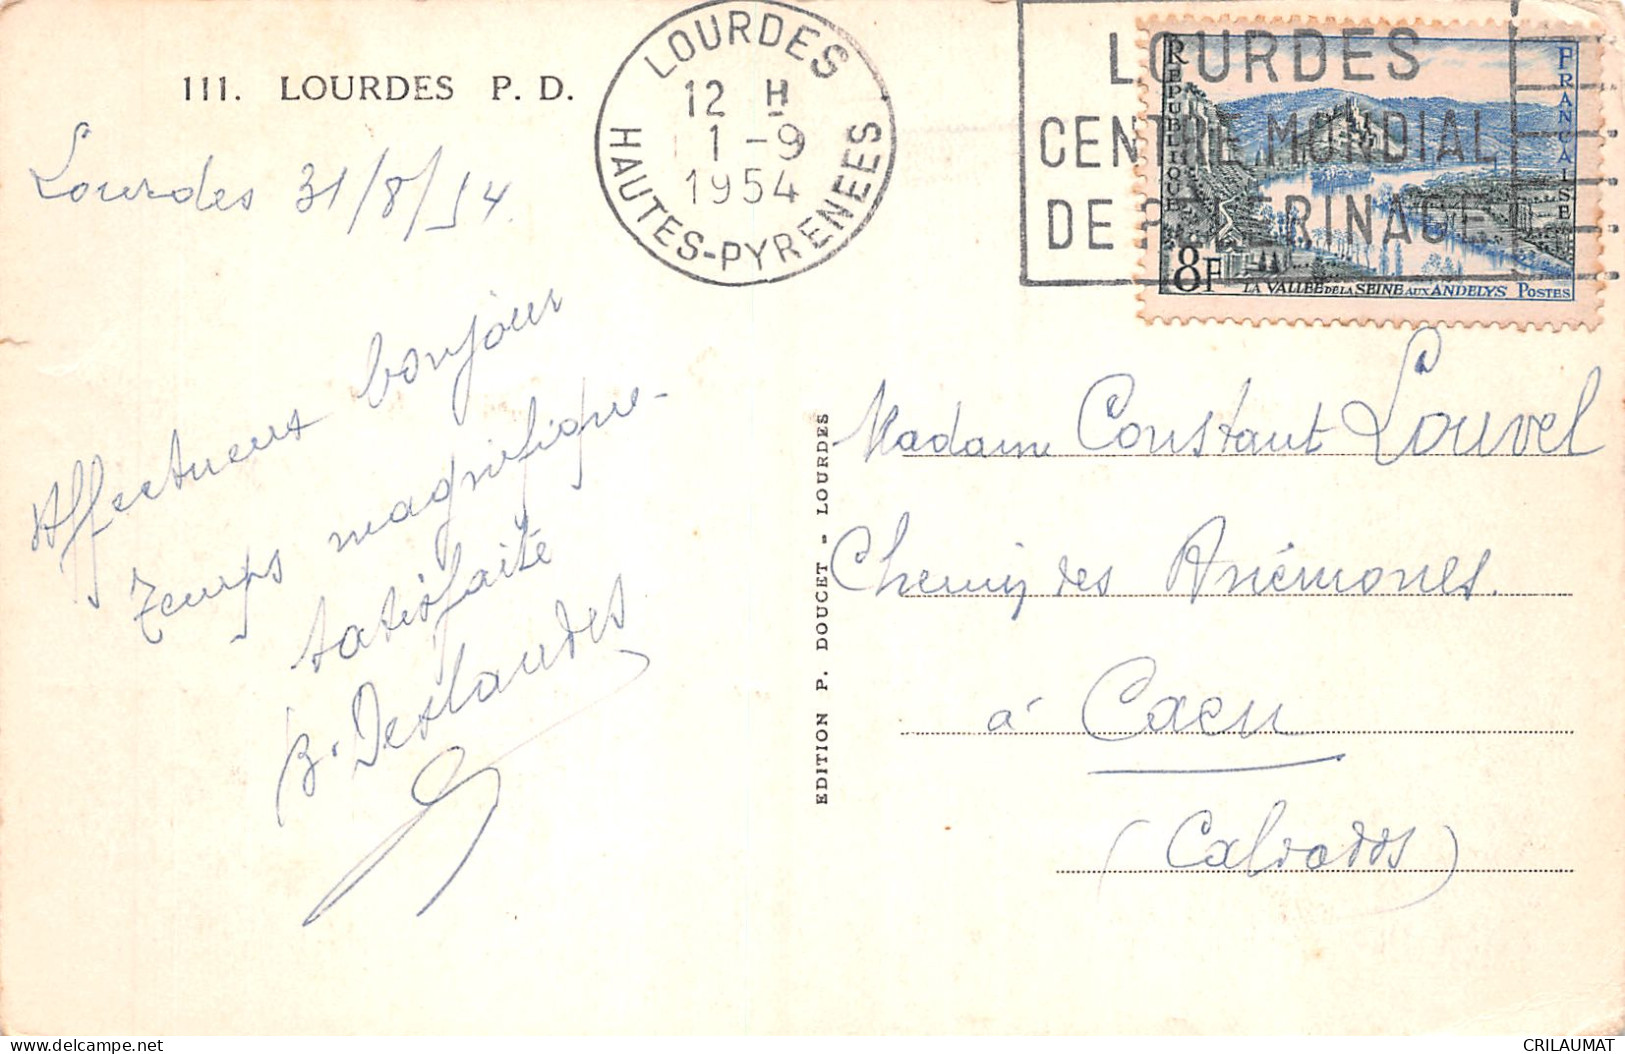 111. LOURDES P. D.
Lourdes 31/8/54.
Affectueux bonjour
Temps magnifique-
satisfaite
B. Deslandes
LOURDES
12 H
1-9
1954
HAUTES-PYRENEES
LOURDES
CENTRE MONDIAL
DE PELERINAGE
REPUBLIQUE
FRANÇAISE
8F
LA VALLÉE DE LA SEINE AUX ANDELYS POSTES
EDITION P. DOUCET - LOURDES
Madame Constant Louvel
Chemin des Anémones.
à Caen
(Calvados)
CRILAUMAT